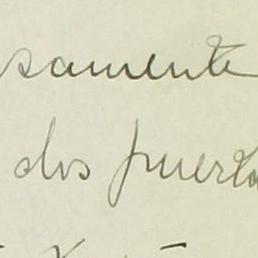 samente
dos puerta